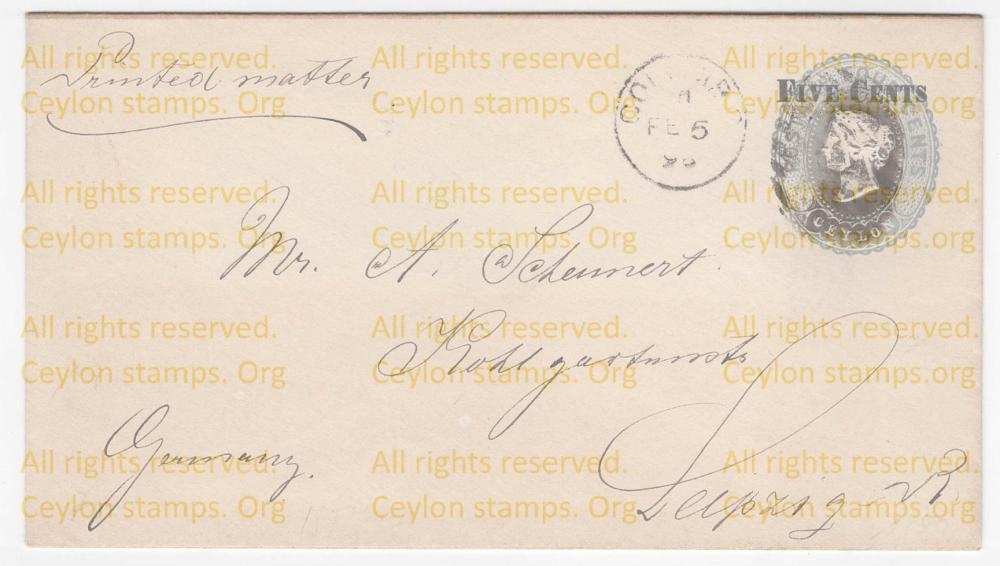 Printed matter
COLOMBO
FE 5
FIVE CENTS
CENTS
CEYLON
Mr. A. Scheunert.
Kohlgartenstr
Leipzig-R.
Germany.
All rights reserved. All rights reserved. All rights reserved.
Ceylon stamps. Org Ceylon stamps. Org Ceylon stamps.org
All rights reserved. All rights reserved. All rights reserved.
Ceylon stamps. Org Ceylon stamps. Org Ceylon stamps. Org
All rights reserved. All rights reserved. All rights reserved.
Ceylon stamps. Org Ceylon stamps. Org Ceylon stamps.org
All rights reserved. All rights reserved. All rights reserved.
Ceylon stamps. Org Ceylon stamps. Org Ceylon stamps. Org